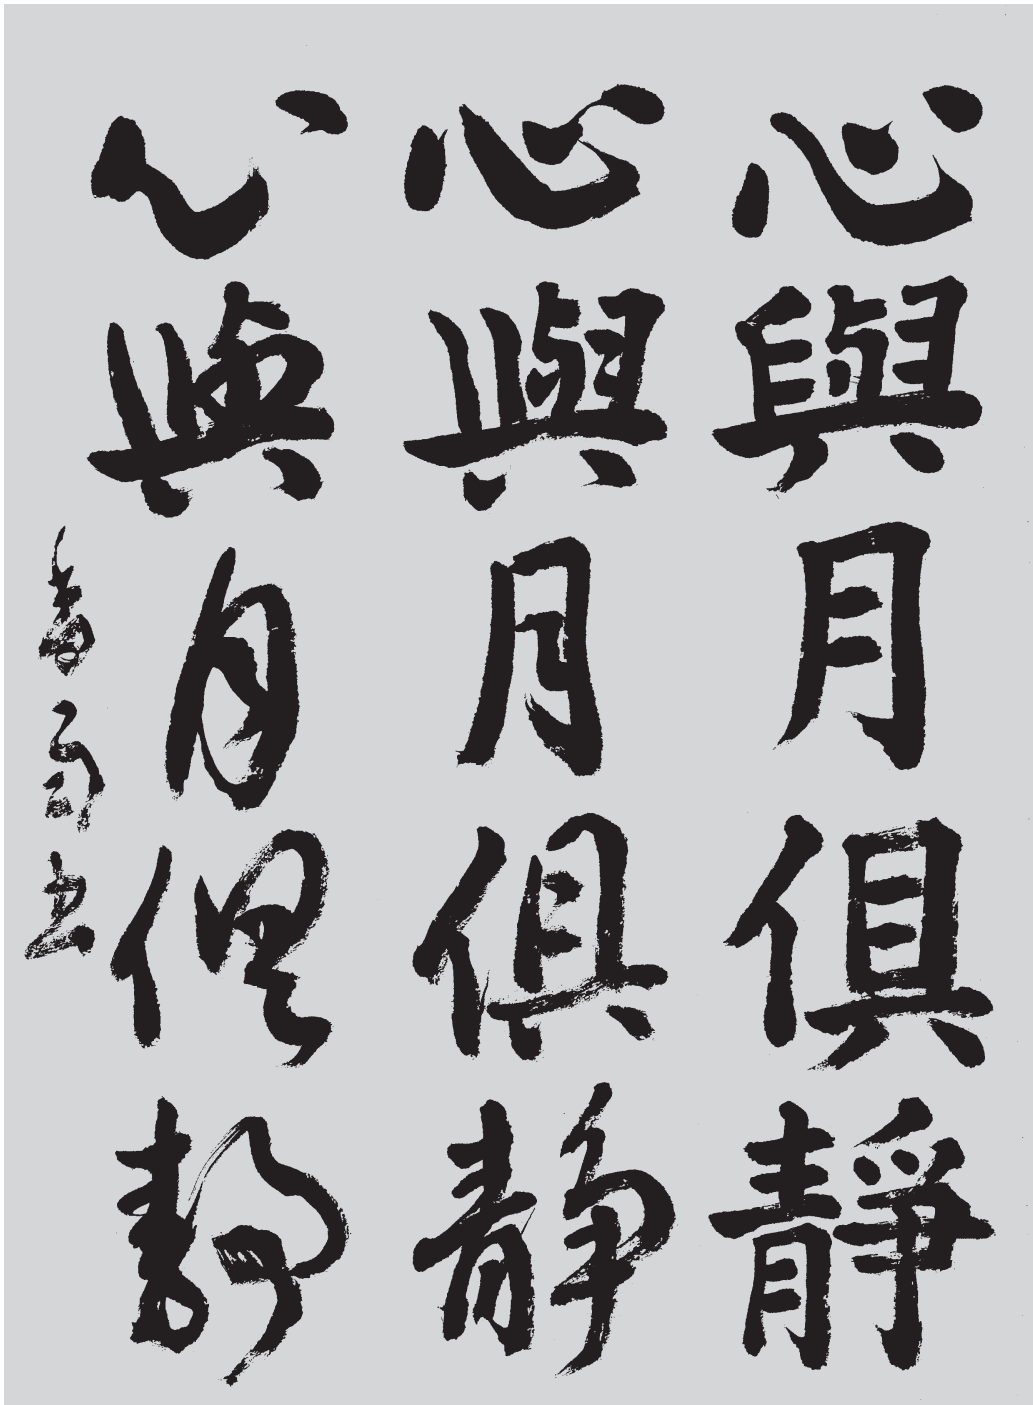 心與月俱靜
心與月俱静
心與月俱静
書